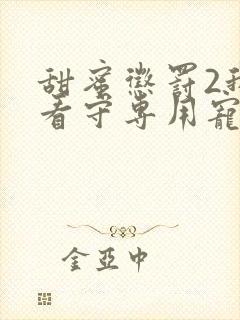 甜蜜懲罰2我
看守専用寵
金亞中